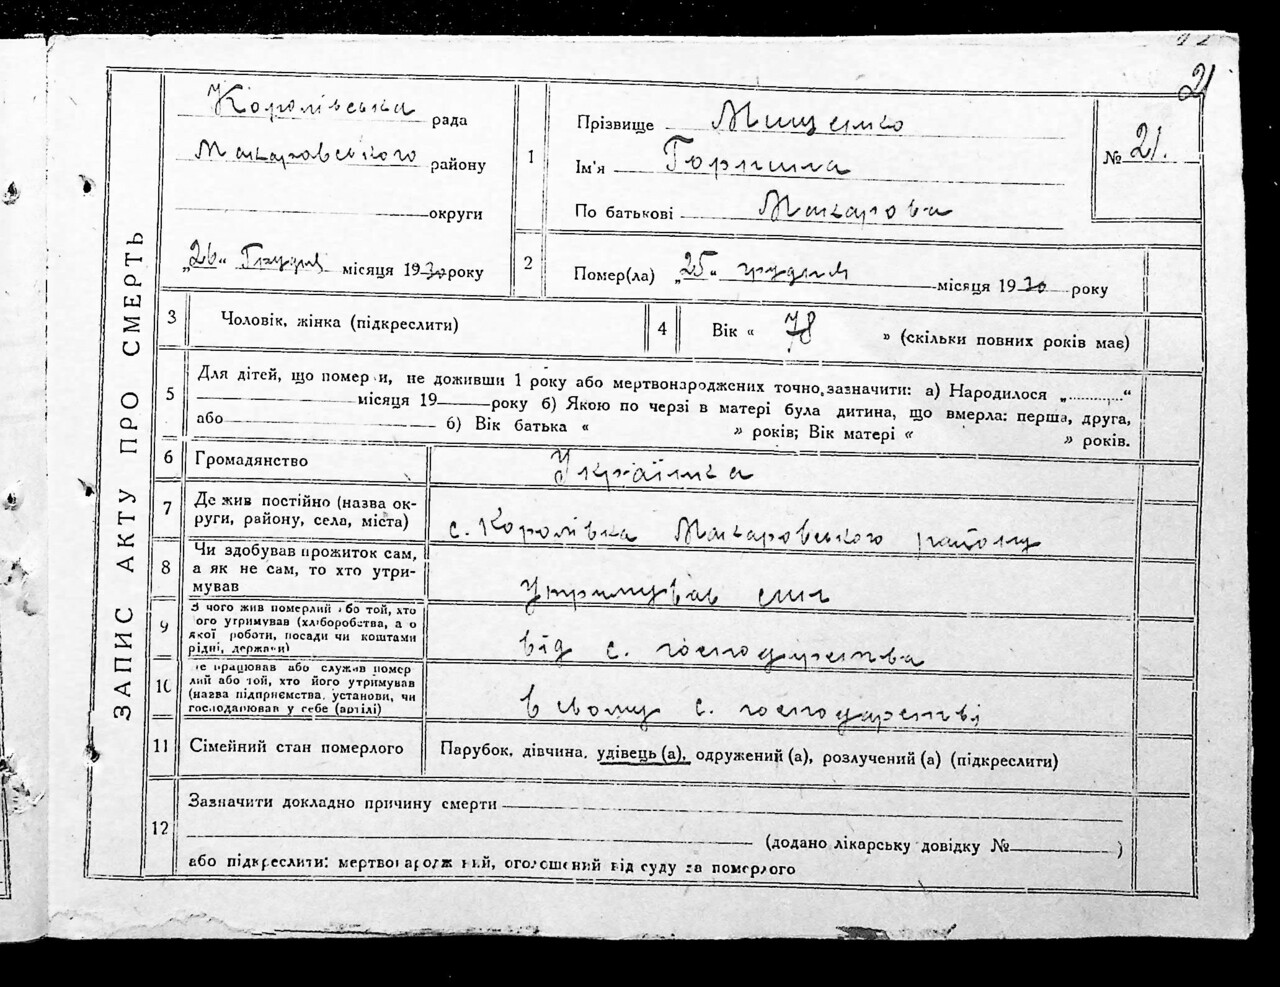 21
ЗАПИС АКТУ ПРО СМЕРТЬ
Королівська рада
Макаровського району
округи
„26“ Грудня місяця 1930 року
1
Прізвище Мищенко
Ім'я Горпина
По батькові Макарова
№ 21.
2
Помер(ла) „25“ грудня місяця 1930 року
3
Чоловік, жінка (підкреслити)
4
Вік « 78 » (скільки повних років має)
5
Для дітей, що помер и, не доживши 1 року або мертвонароджених точно зазначити: а) Народилося „..........“
місяця 19 року б) Якою по черзі в матері була дитина, що вмерла: перша, друга,
або б) Вік батька « » років; Вік матері « » років.
6
Громадянство
Українка
7
Де жив постійно (назва ок-
руги, району, села, міста)
с. Королівка Макаровського району
8
Чи здобував прожиток сам,
а як не сам, то хто утри-
мував
утримував син
9
З чого жив померлий або той, хто
ого утримував (хліборобства, а о
якої роботи, посади чи коштами
рідні, держави)
від с. господарства
10
де працював або служив помер
лий або той, хто його утримував
(назва підприємства, установи, чи
господарював у себе (артілі)
в свому с. господарстві
11
Сімейний стан померлого
Парубок, дівчина, удівець (а), одружений (а), розлучений (а) (підкреслити)
12
Зазначити докладно причину смерти
(додано лікарську довідку № )
або підкреслити: мертвонародж ний, оголошений від суду за померлого